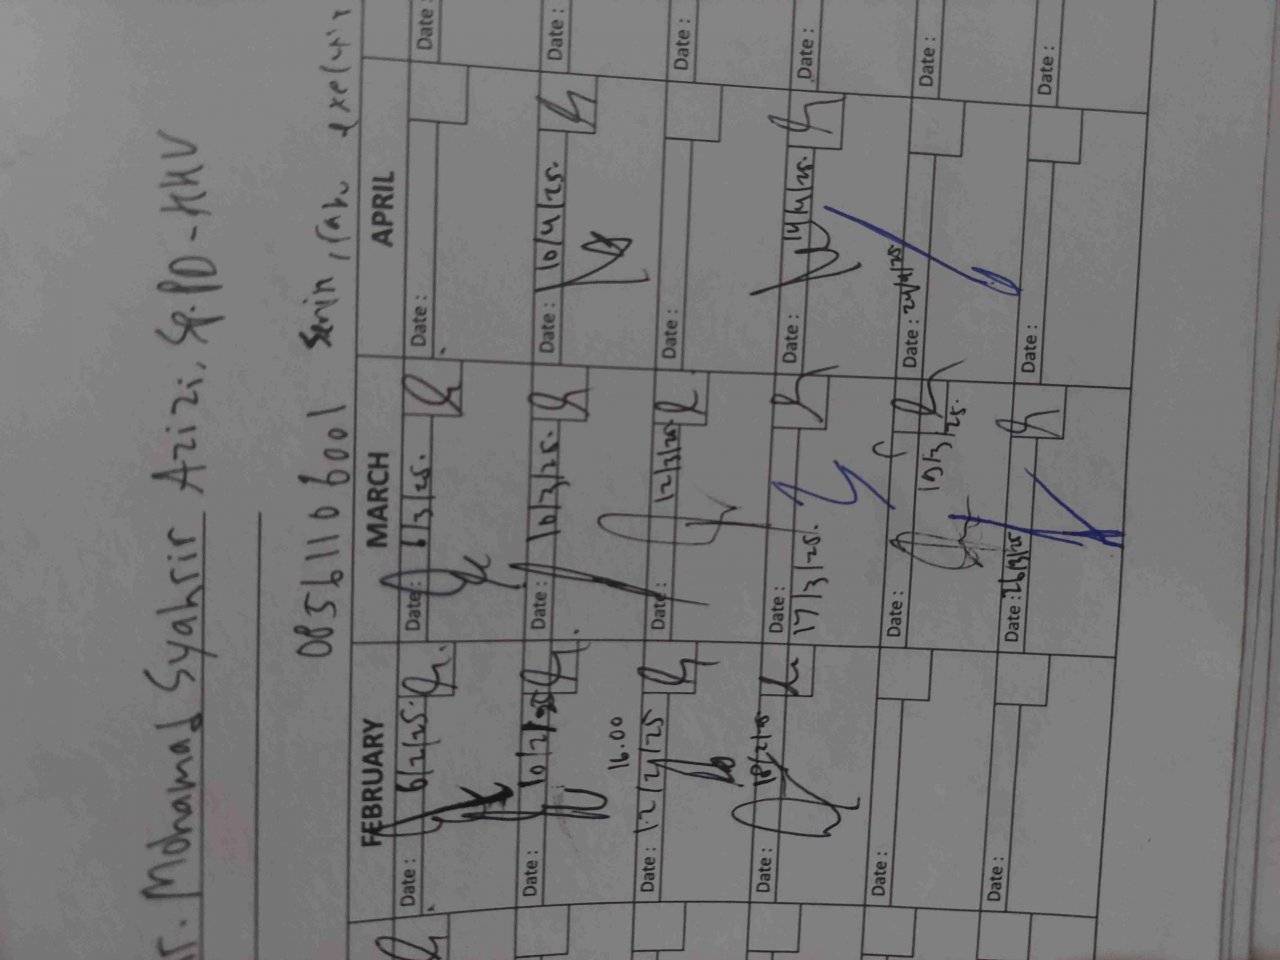 Mohamad Syahrir Azizi, Sp.PD-KHV
08561106001 Senin,
FEBRUARY MARCH APRIL
Date: 6/2/25. Date: 6/3/25. Date: Date:
Date: 10/2/25 Date: 10/3/25. Date: 10/4/25. Date:
16.00
Date: 12/2/25 Date: 12/3/25 Date: Date:
Date: 18/2/25 Date: 17/3/25. Date: 14/4/25. Date:
Date: Date: 19/3/25. Date: 24/4/25 Date:
Date: Date: 26/3/25 Date: Date: